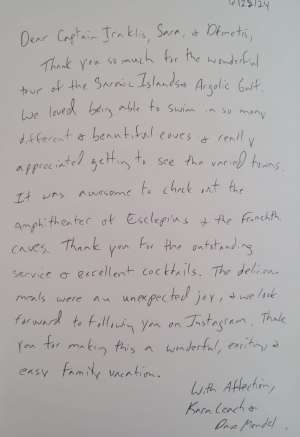 4/28/24
Dear Captain Iraklis, Sara, & Demetri,
Thank you so much for the wonderful
tour of the Saronic Islands & Argolic Gulf.
We loved being able to swim in so many
different & beautiful coves & really
appreciated getting to see the varied towns.
It was awesome to check out the
amphitheater of Esclepius & the Franchthi
caves. Thank you for the outstanding
service & excellent cocktails. The delicious
meals were an unexpected joy, & we look
forward to following you on Instagram. Thank
you for making this a wonderful, exciting, &
easy family vacation.
With Affection,
Kara Leach &
Dave Mandel